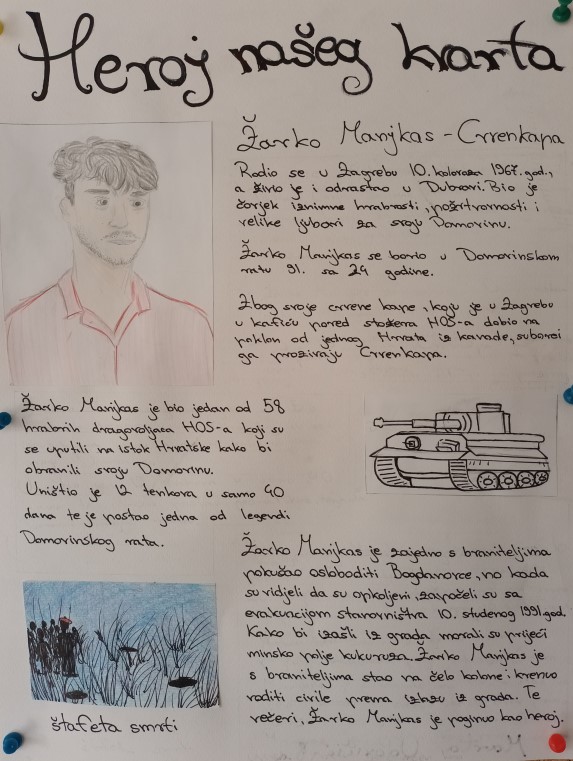 Heroj našeg kvarta
Žarko Manjkas - Crvenkapa
Rodio se u Zagrebu 10. kolovoza 1967. god.,
a živio je i odrastao u Dubravi. Bio je
čovjek iznimne hrabrosti, požrtvornosti i
velike ljubavi za svoju Domovinu.
Žarko Manjkas se borio u Domovinskom
ratu 91. sa 24 godine.
Zbog svoje crvene kape, koju je u Zagrebu
u kafiću pored stožera HOS-a dobio na
poklon od jednog Hrvata iz kanade, suborci
ga prozivaju Crvenkapa.
Žarko Manjkas je bio jedan od 58
hrabrih dragovoljaca HOS-a koji su
se uputili na istok Hrvatske kako bi
obranili svoju Domovinu.
Uništio je 12 tenkova u samo 40
dana te je postao jedna od legendi
Domovinskog rata.
Žarko Manjkas je zajedno s braniteljima
pokušao osloboditi Bogdanovce, no kada
su vidjeli da su opkoljeni, započeli su sa
evakuacijom stanovništva 10. studenog 1991. god.
Kako bi izašli iz grada morali su prijeći
minsko polje kukuruza. Žarko Manjkas je
s braniteljima stao na čelo kolone i krenuo
voditi civile prema izlazu iz grada. Te
večeri, Žarko Manjkas je poginuo kao heroj.
štafeta smrti